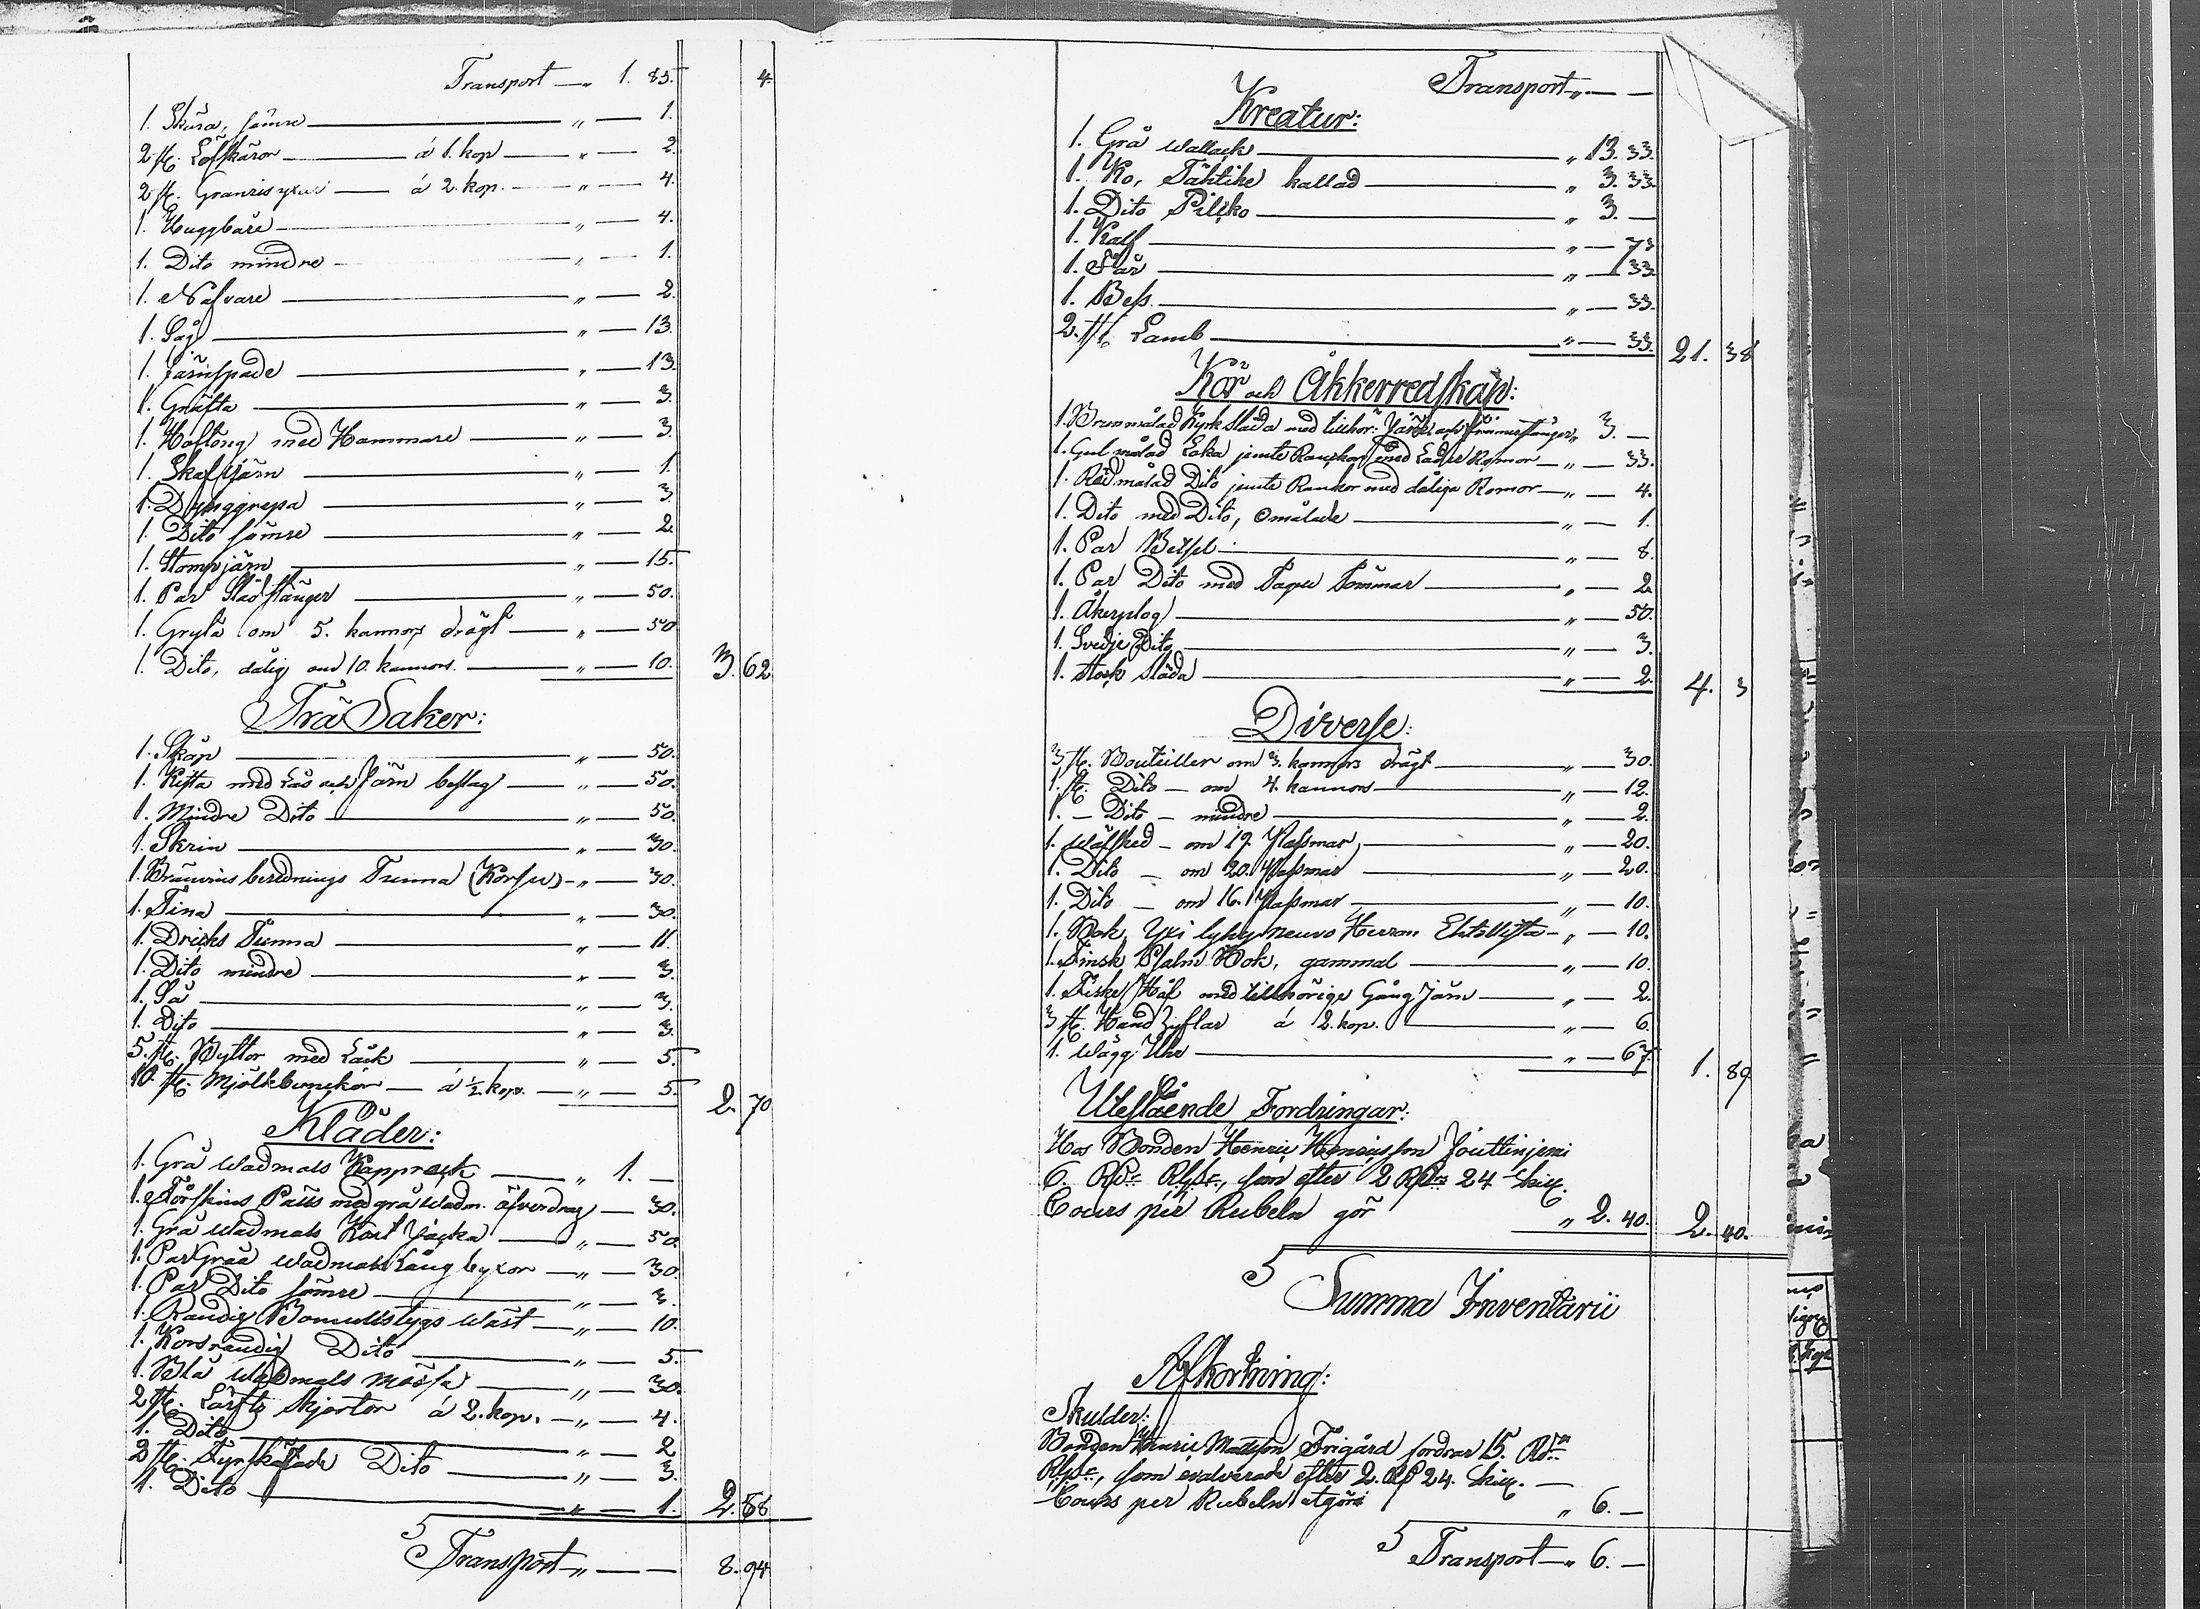 Transport — " 1. 85. 4.
1. Skära, sämre — " — 1.
2 st. Löfskäror — á 1. kop — " — 2.
2 st. Granrisyxor — á 2. kop. — " — 4.
1. Huggbåre — " — 4.
1. Dito mindre — " — 1.
1. Nafvare — " — 2.
1. Såg — " — 13.
1. Järnspade — " — 13.
1. Gräfta — " — 3.
1. Hoftång med Hammare — " — 3.
1. Skafjärn — " — 1.
1. Dynggrepa — " — 3.
1. Dito sämre — " — 2.
1. Stompjärn — " — 15.
1. Par Slädstänger — " — 50.
1. Gryta om 5. kannors drägt — " — 50
1. Dito, dålig om 10. kannors. — " — 10. 3. 62.
Trä Saker:
1. Skåp — " — 50.
1. Kista med Lås och Järn beslag — " — 50.
1. Mindre Dito — " — 50.
1. Skrin — " — 30.
1. Bränvins berednings Tunna (Korsu) — " — 30.
1. Tina — " — 30.
1. Dricks Tunna — " — 11.
1. Dito mindre — " — 3.
1. Så — " — 3.
1. Dito — " — 3.
5. st. Byttor med Låck — " — 5.
10. st. Mjölkbunckar — á ½ kop. — " — 5. 2. 70
Kläder:
1. Grå Wadmals Kapprock — " 1. —
1. Fårskins Päls med grå Wadm. öfverdrag — 30.
1. Grå Wadmals Kort Jacka — " — 50.
1. Par Gråa Wadmals Långbyxor — " — 30.
1. Par Dito sämre — " — 3.
1. Randig Bomullstygs Wäst — " — 10.
1. Korsrandig Dito — " — 5.
1. Blå Wadmals Mössa — " — 30.
2 st. Lärfts Skjortor á 2. kop. — " — 4.
1. Dito — " — 2
3 st. Dito — " — 3.
1. Dito — " — 1. 2. 58
Transport — " — — 8. 94
Transport " — —
Kreatur:
1. Grå Wallack — " 13. 33.
1. Ko, Tähtike kallad — " 3. 33.
1. Dito Pilcko — " 3. —
1. Kalf — " — 73
1. Får — " — 33.
1. Bess. — " — 33.
2. st. Lamb — " — 33. 21. 38
Kör och Åkkerredskap:
1. Brunmålad Kyrkslåda med tillhör: Järn och Frimmerstänger " 3. —
1. Gul målad Loka jemte Ranckor med Läder Remor — " — 33.
1. Röd målad Dito jemte Rankor med dåliga Remor — " — 4.
1. Dito med Dito, omålade — " — 1.
1. Par Beissel — " — 8.
1. Par Dito med Tågu Tömmar — " — 2
1. Åkerplog — " — 50.
1. Svedje Dito — " — 3.
1. Stock Släda — " — 2. 4. 3
Diverse:
3 st. Bouteiller om 3. kannors drägt — " — 30.
1. st. Dito — om 4. kannors — " — 12.
1. — Dito — mindre — " — 2.
1. Wäfsked — om 19. Passmar — " — 20.
1. Dito — om 20. Passmar — " — 20.
1. Dito — om 16. Passmar — " — 10.
1. Bok. Yxi lyhy neuvo Herran Ehtollista — " — 10.
1. Finsk Psalm Bok, gammal — " — 10.
1. Fiske Håf med tillhörige Gång Järn — " — 2.
3 st. Hand Zyflar á 2. kop. — " — 6.
1. Wägg Uhr — " — 67. 1. 89
Utestående Fordringar:
Hos Bonden Henric Henricsson Joutlinjemi
6. RDr RGSr, som efter 2 RDr 24 skill.
Cours per Rubeln gör " 2. 40. 2. 40.
Summa Inventarii
Afkortning:
Skulder:
Bonden Henric Matsson Frigård fordrar 15. RDr
RGSr, som evalverade efter 2. RD 24. skill. —
Cours per Rubeln utgöra " 6. —
Transport — " 6. —